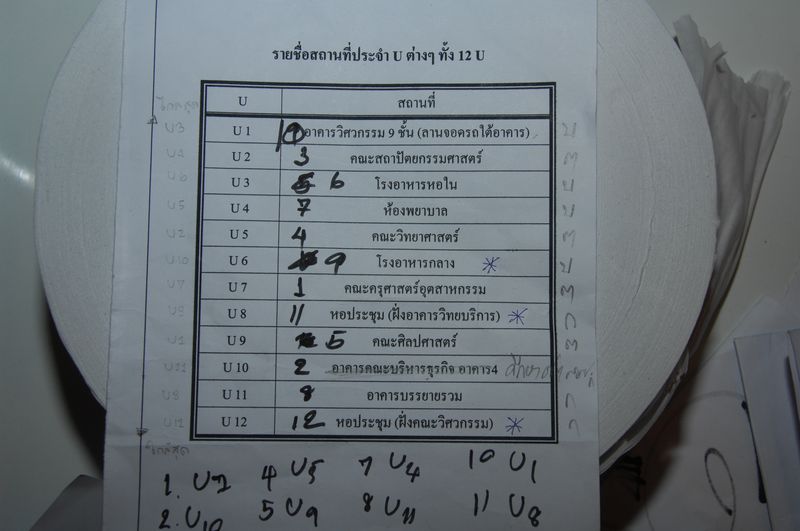 รายชื่อสถานที่ประจำ U ต่างๆ ทั้ง 12 U
U สถานที่
U 1 อาคารวิศวกรรม 9 ชั้น (ลานจอดรถใต้อาคาร)
U 2 3 คณะสถาปัตยกรรมศาสตร์
U 3 6 โรงอาหารหอใน
U 4 7 ห้องพยาบาล
U 5 4 คณะวิทยาศาสตร์
U 6 9 โรงอาหารกลาง *
U 7 1 คณะครุศาสตร์อุตสาหกรรม
U 8 11 หอประชุม (ฝั่งอาคารวิทยบริการ) *
U 9 5 คณะศิลปศาสตร์
U 10 2 อาคารคณะบริหารธุรกิจ อาคาร4
U 11 8 อาคารบรรยายรวม
U 12 12 หอประชุม (ฝั่งคณะวิศวกรรม) *
1. U7 4 U5 7 U4 10 U1
2. U10 5 U9 8 U11 11 U8